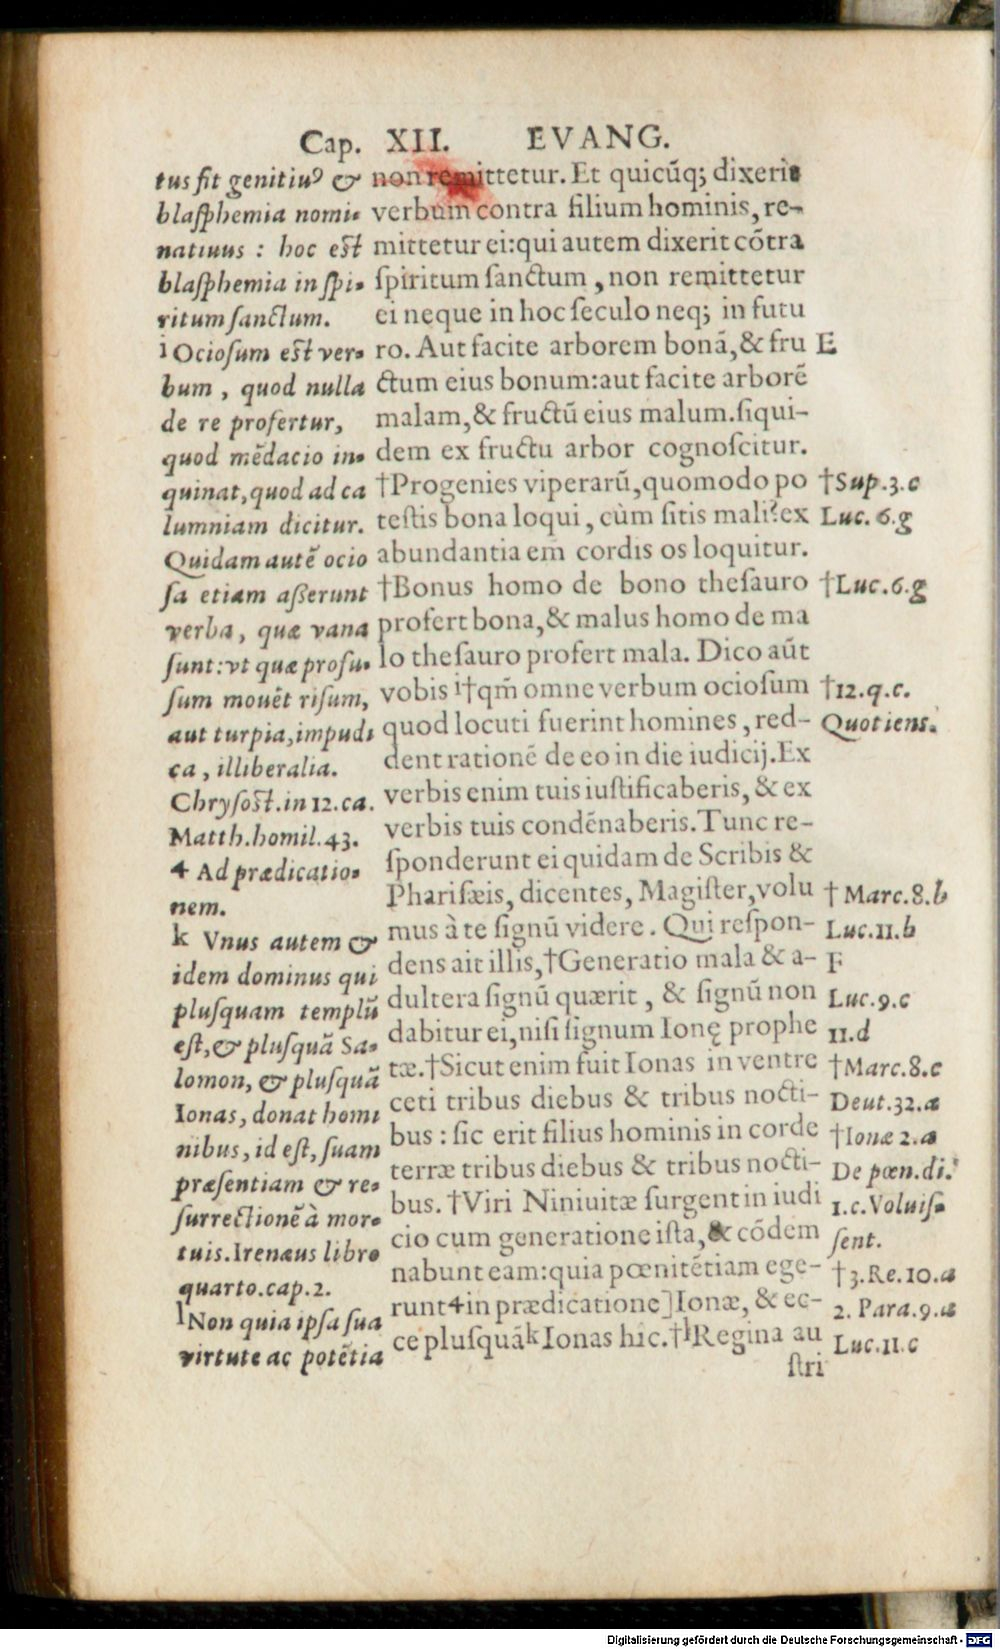 Cap. XII. EVANG.
tus fit genitiuꝰ &
blasphemia nomi-
natiuus : hoc est
blasphemia in spi-
ritum sanctum.
i Ociosum est ver-
bum , quod nulla
de re profertur,
quod mēdacio in-
quinat,quod ad ca
lumniam dicitur.
Quidam autē ocio
sa etiam asserunt
verba, quæ vana
sunt:vt quæ profu-
sum mouēt risum,
aut turpia,impudi
ca, illiberalia.
Chrysost.in 12.ca.
Matth.homil.43.
4 Ad prædicatio-
nem.
k Vnus autem &
idem dominus qui
plusquam templū
est,& plusquā Sa-
lomon, & plusquā
Ionas, donat homi
nibus, id est, suam
præsentiam & re-
surrectionē à mor-
tuis.Irenæus libro
quarto.cap.2.
l Non quia ipsa sua
virtute ac potētia
non remittetur. Et quicūq; dixerit
verbum contra filium hominis, re-
mittetur ei:qui autem dixerit cōtra
spiritum sanctum , non remittetur
ei neque in hoc seculo neq; in futu
ro. Aut facite arborem bonā,& fru
ctum eius bonum:aut facite arborē
malam,& fructū eius malum.siqui-
dem ex fructu arbor cognoscitur.
†Progenies viperarū,quomodo po
testis bona loqui , cùm sitis mali?ex
abundantia em cordis os loquitur.
†Bonus homo de bono thesauro
profert bona,& malus homo de ma
lo thesauro profert mala. Dico aūt
vobis i†qm̄ omne verbum ociosum
quod locuti fuerint homines , red-
dent rationē de eo in die iudicij.Ex
verbis enim tuis iustificaberis, & ex
verbis tuis condēnaberis.Tunc re-
sponderunt ei quidam de Scribis &
Pharisæis, dicentes, Magister,volu
mus à te signū videre . Qui respon-
dens ait illis,†Generatio mala & a-
dultera signū quærit , & signū non
dabitur ei,nisi signum Ionę prophe
tæ.†Sicut enim fuit Ionas in ventre
ceti tribus diebus & tribus nocti-
bus : sic erit filius hominis in corde
terræ tribus diebus & tribus nocti-
bus. †Viri Niniuitæ surgent in iudi
cio cum generatione ista,& cōdem
nabunt eam:quia pœnitētiam ege-
runt 4 in prædicatione]Ionæ, & ec-
ce plusquā k Ionas hic.†l Regina au
stri
E
†Sup.3.c
Luc. 6.g
†Luc.6.g
†12.q.c.
Quotiens.
† Marc.8.b
Luc.11.b
F
Luc.9.c
11.d
†Marc.8.c
Deut.32.a
†Ionæ 2.a
De pœn.di.
1.c.Voluis-
sent.
†3.Re.10.a
2. Para.9.a
Luc.11.c
Digitalisierung gefördert durch die Deutsche Forschungsgemeinschaft - DFG